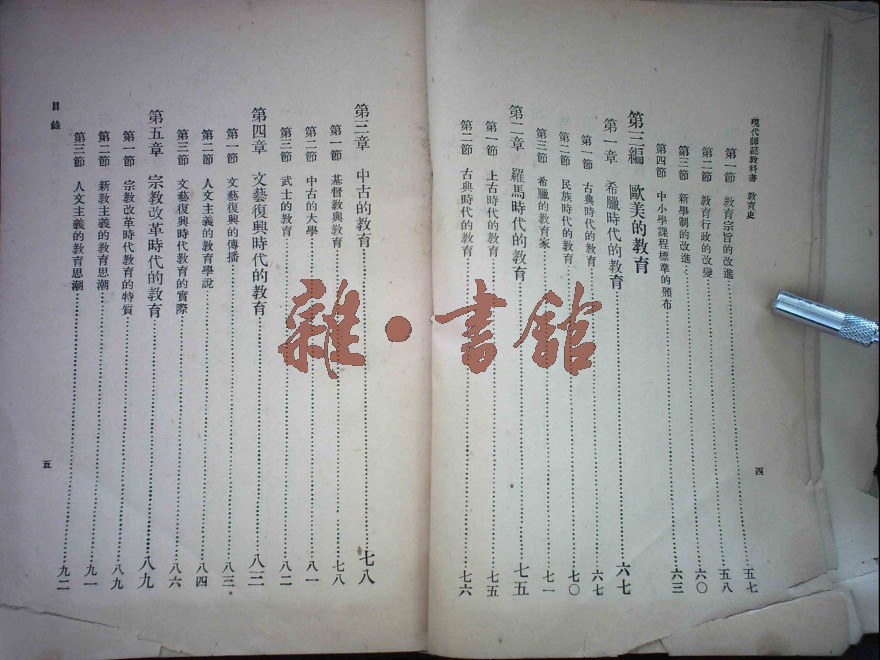 現代師範教科書 教育史
第一節 教育宗旨的改進 五七
第二節 教育行政的改變 五八
第三節 新學制的改進 六〇
第四節 中小學課程標準的頒布 六三
第三編 歐美的教育
第一章 希臘時代的教育 六七
第一節 古典時代的教育 六七
第二節 民族時代的教育 七〇
第三節 希臘的教育家 七一
第二章 羅馬時代的教育 七五
第一節 上古時代的教育 七五
第二節 古典時代的教育 七六
四
第三章 中古的教育 七八
第一節 基督教與教育 七八
第二節 中古的大學 八一
第三節 武士的教育 八二
第四章 文藝復興時代的教育 八三
第一節 文藝復興的傳播 八三
第二節 人文主義的教育學說 八四
第三節 文藝復興時代教育的實際 八六
第五章 宗教改革時代的教育 八九
第一節 宗教改革時代教育的特質 八九
第二節 新教主義的教育思潮 九一
第三節 人文主義的教育思潮 九二
目錄
五
雜·書館